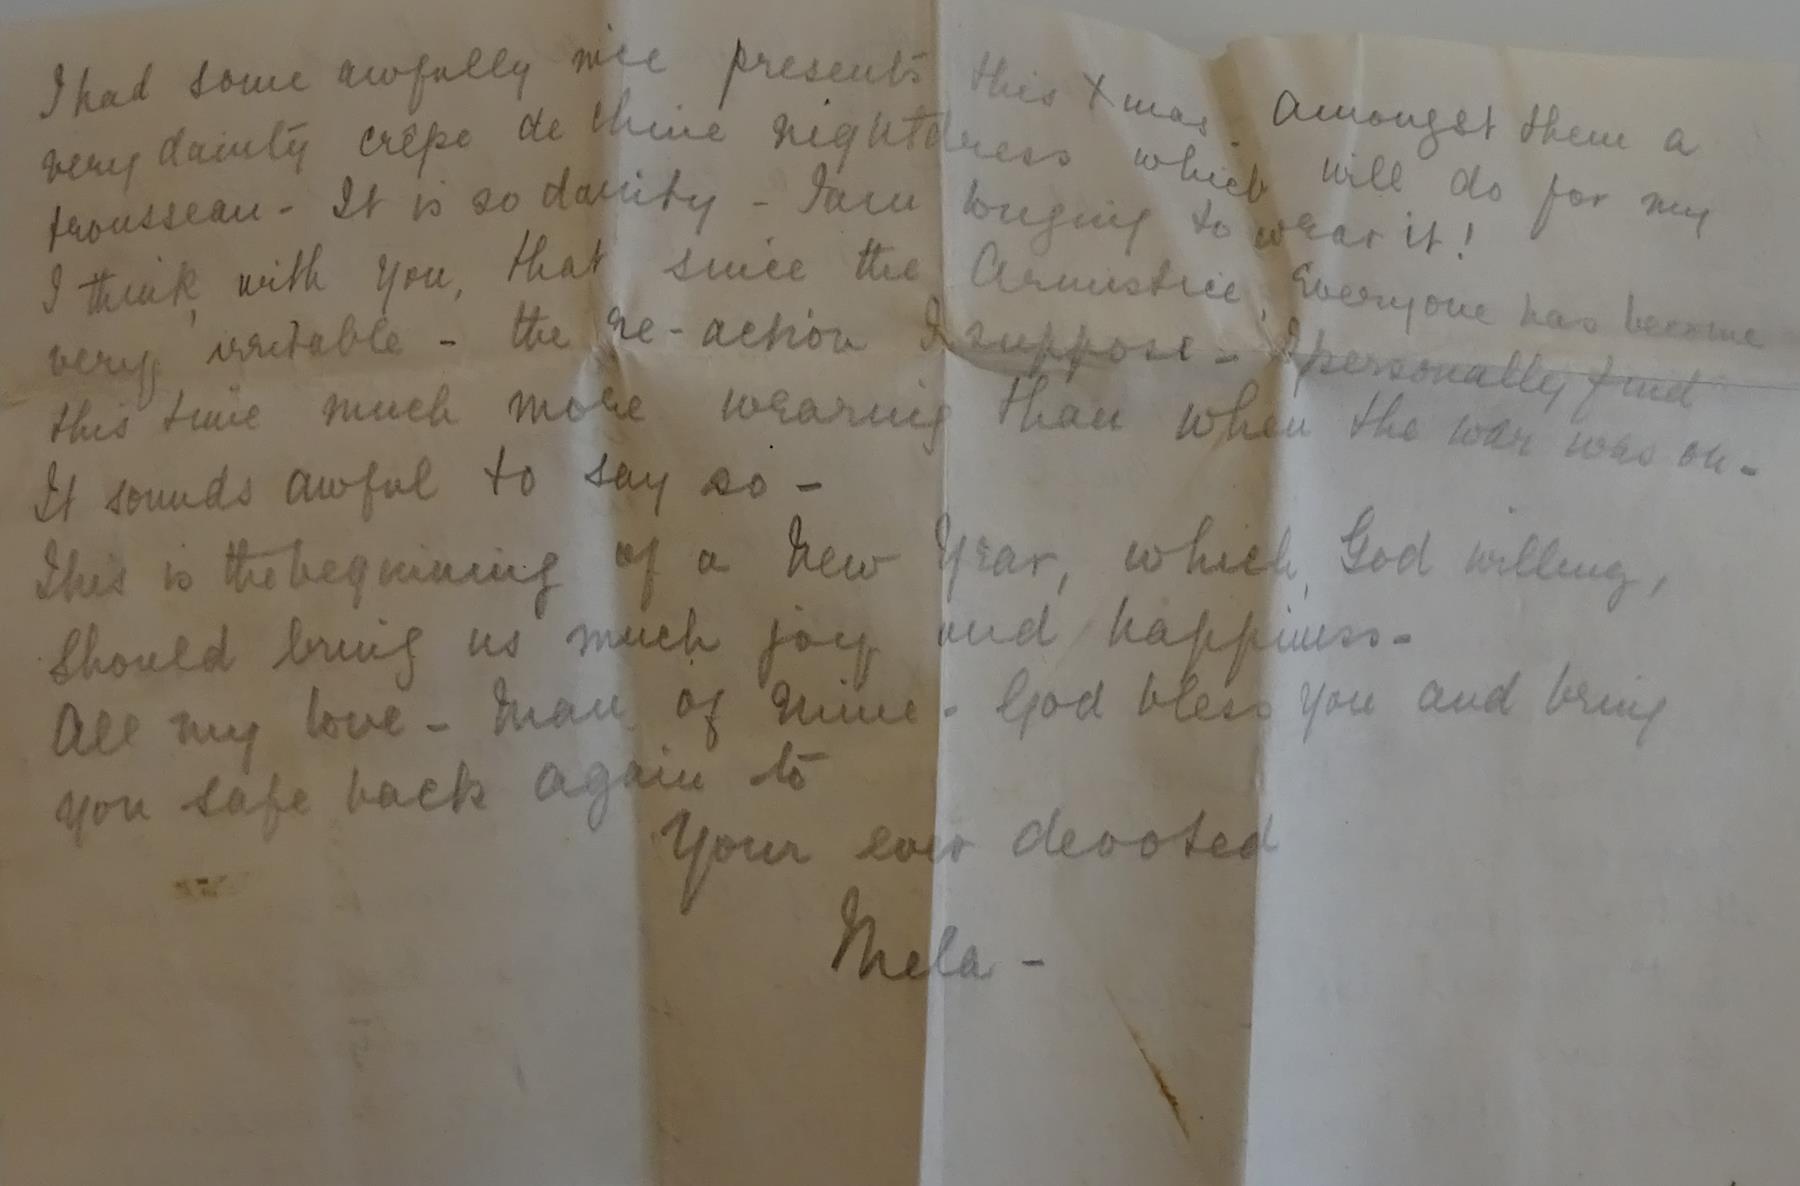 I had some awfully nice presents this Xmas. Amongst them a
very dainty crêpe de chine nightdress which will do for my
trousseau - It is so dainty - I am longing to wear it!
I think with you, that since the Armistice, Everyone has become
very irritable - the re-action I suppose - I personally find
this time much more wearing than when the war was on -
It sounds awful to say so -
This is the beginning of a New Year, which, God willing,
should bring us much joy and happiness -
All my love - Man of mine - God bless you and bring
you safe back again to
Your ever devoted
Mela -